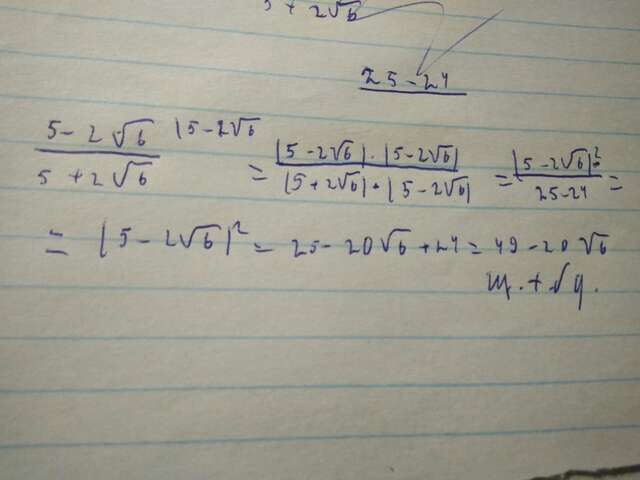 5 + 2√6
25-24
5-2√6 / 5+2√6 |5-2√6 = |5-2√6|·|5-2√6| / |5+2√6|·|5-2√6| = |5-2√6|² / 25-24 =
= |5-2√6|² = 25-20√6+24 = 49-20√6
m.+√q.